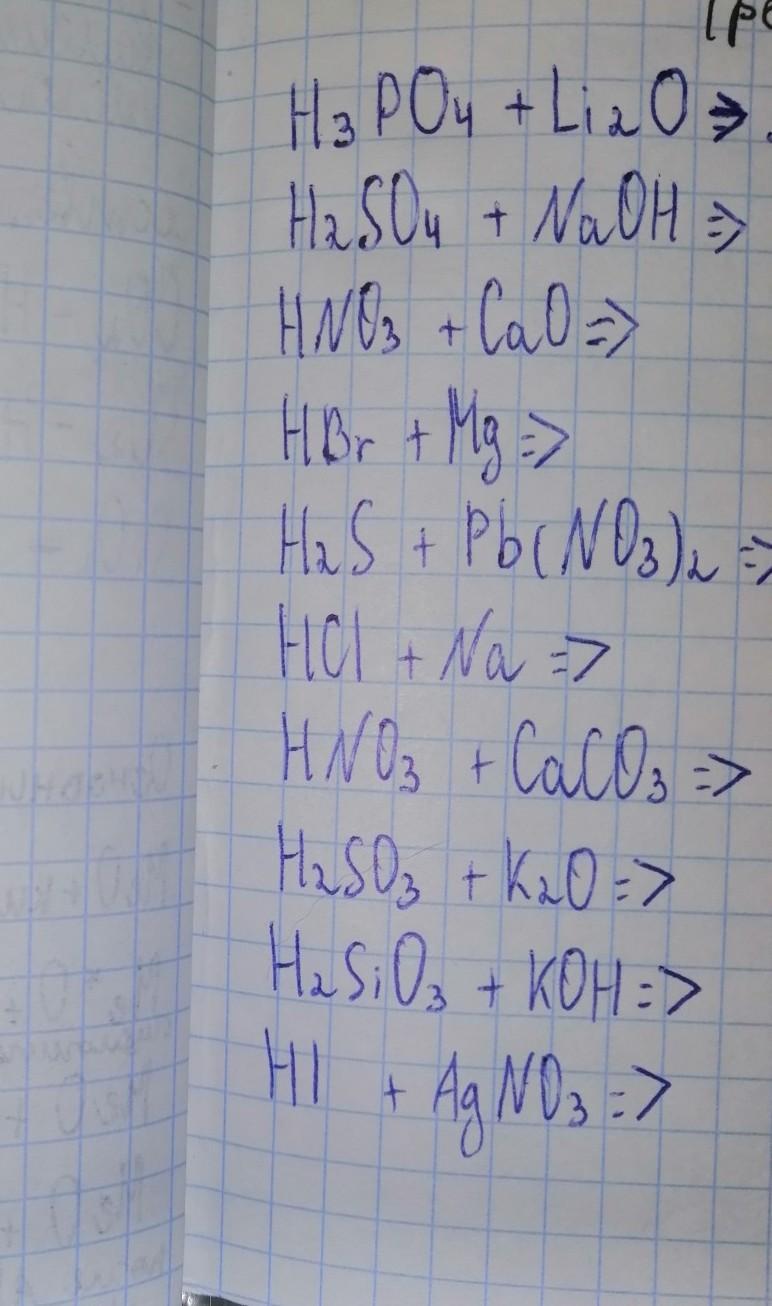 H₃PO₄ + Li₂O =>
H₂SO₄ + NaOH =>
HNO₃ + CaO =>
HBr + Mg =>
H₂S + Pb(NO₃)₂ =>
HCl + Na =>
HNO₃ + CaCO₃ =>
H₂SO₃ + K₂O =>
H₂SiO₃ + KOH =>
HI + AgNO₃ =>